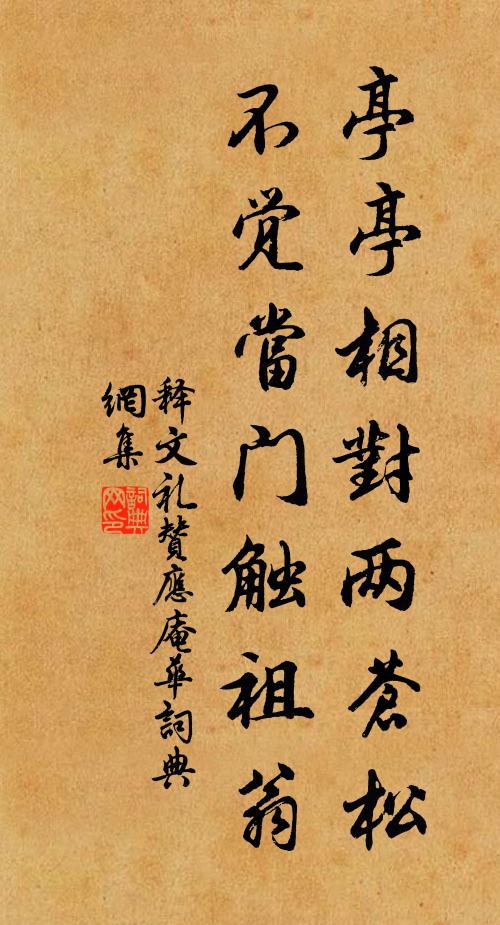 亭亭相對两蒼松
不觉當门触祖翁
释文礼赞應庵华詞典
網集
詞典网印